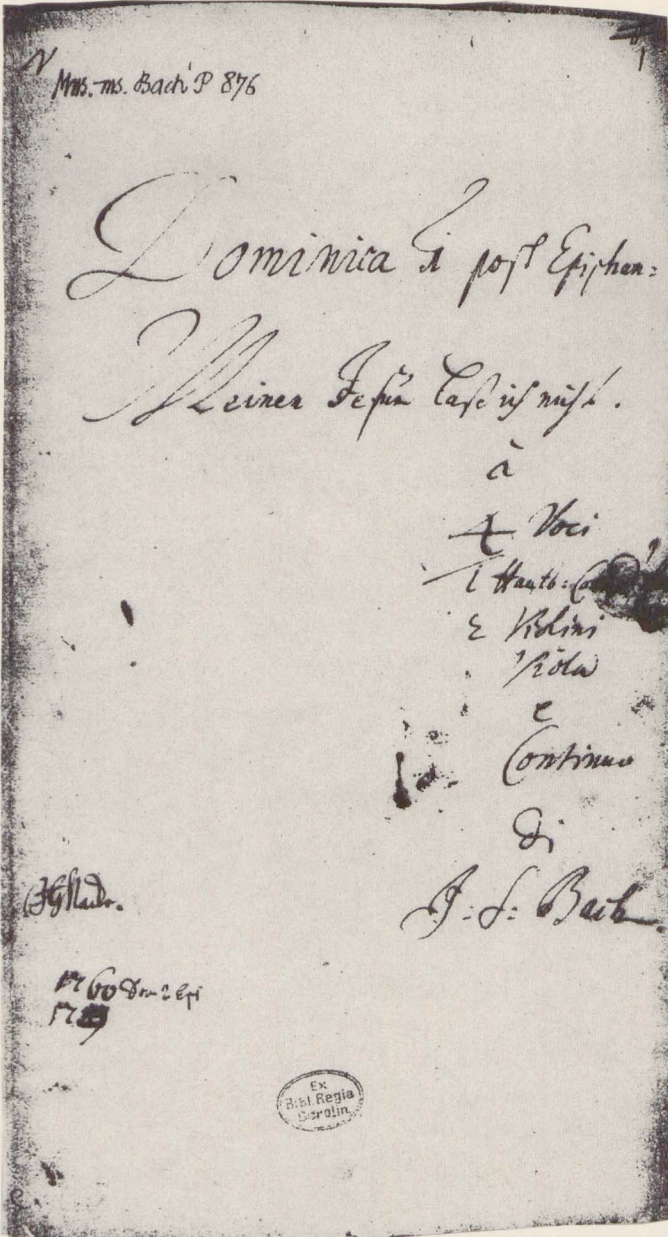 Mus. ms. Bach P 876
1
Dominica 1 post Epiphan:
Meinen Jesum laß ich nicht.
à
4 Voci
1 Hautb:
2 Violini
Viola
e
Continuo
di
J: S: Bach
1760 Dom 2 Epi
Ex
Bibl. Regia
Berolin.